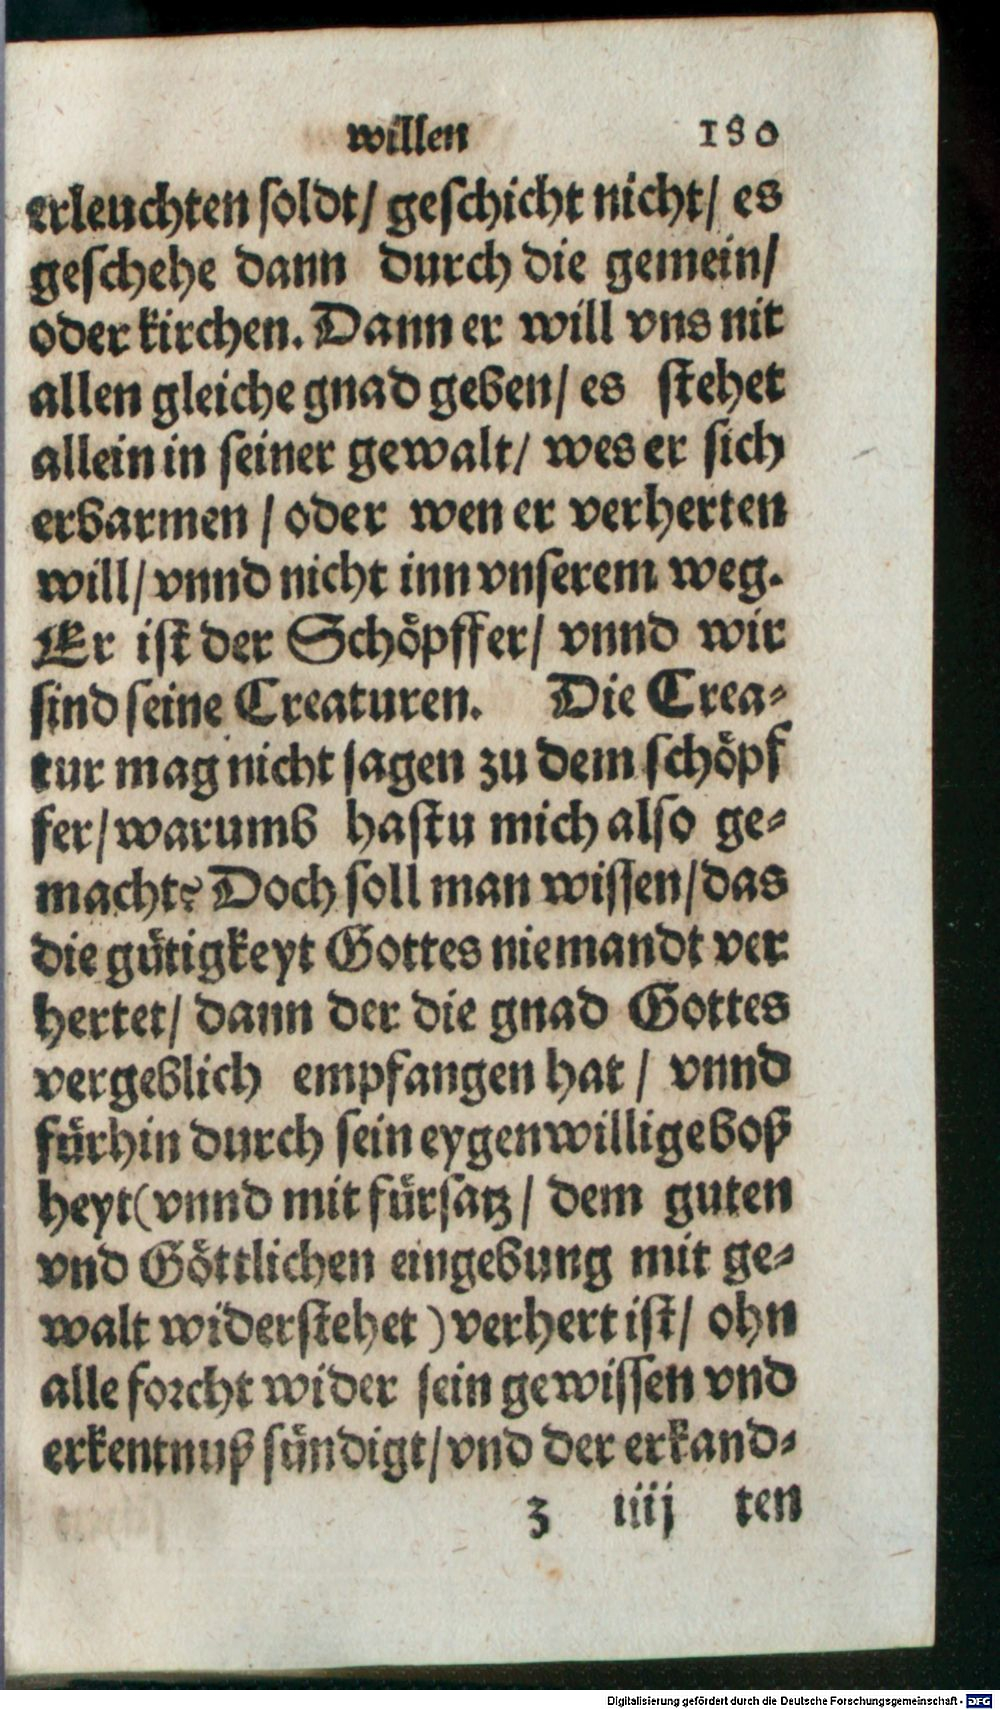 willen 180
erleuchten soldt/ geschicht nicht/ es
geschehe dann durch die gemein/
oder kirchen. Dann er will vns nit
allen gleiche gnad geben/ es stehet
allein in seiner gewalt/ wes er sich
erbarmen / oder wen er verherten
will/ vnnd nicht inn vnserem weg.
Er ist der Schöpffer/ vnnd wir
sind seine Creaturen. Die Crea-
tur mag nicht sagen zu dem schöpf
fer/ warumb hastu mich also ge-
macht? Doch soll man wissen/ das
die gütigkeyt Gottes niemandt ver
hertet/ dann der die gnad Gottes
vergeblich empfangen hat / vnnd
fürhin durch sein eygenwillige boß
heyt (vnnd mit fürsatz / dem guten
vnd Göttlichen eingebung mit ge-
walt widerstehet ) verhert ist/ ohn
alle forcht wider sein gewissen vnd
erkentnuß sündigt/ vnd der erkand-
z iiij ten
Digitalisierung gefördert durch die Deutsche Forschungsgemeinschaft - DFG